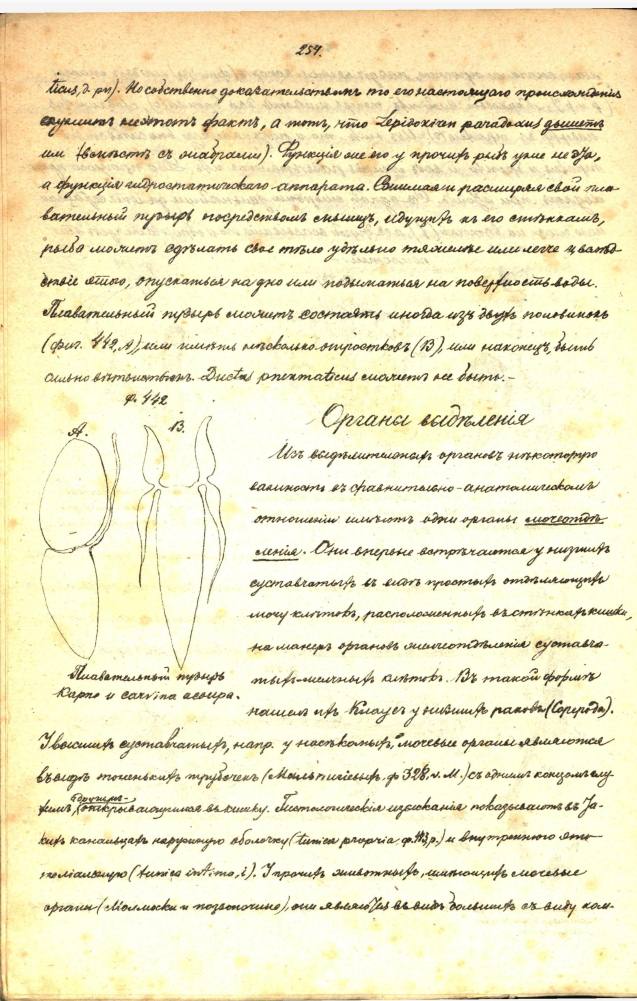 257.
ticus, d. pn). Но собственно доказательствомъ то его настоящаго происхожденія
служитъ не этотъ фактъ, а тотъ, что Lepidosiren paradoxus дышетъ
им (вмѣстѣ съ жабрами). Функція же его у прочихъ рыбъ уже не та,
а функція гидростатическаго аппарата. Сжимая и расширяя свой пла-
вательный пузырь посредствомъ мышцъ, идущихъ къ его стѣнкамъ,
рыба можетъ сдѣлать свое тѣло удѣльно тяжелѣе или легче и вслѣд-
ствіе этого, опускаться на дно или подыматься на поверхность воды.
Плавательный пузырь можетъ состоять иногда изъ двухъ половинокъ
(фиг. 442, А), или имѣть нѣсколько отростковъ (В), или наконецъ, быть
сильно вѣтвистымъ. Ductus pneumaticus можетъ не быть.-
Ф. 442
А. В.
Плавательный пузырь
Карпа и corvina
Органы выдѣленія
Изъ выдѣлительныхъ органовъ нѣкоторую
важность въ сравнительно-анатомическомъ
отношеніи имѣютъ одни органы мочеотдѣ-
ленія. Они впервые встрѣчаются у низшихъ
суставчатыхъ въ видѣ простыхъ отдѣляющихъ
мочу клѣтокъ, расположенныхъ въ стѣнкахъ кишки,
на манеръ органовъ желчеотдѣленія суставча-
тыхъ-желчныхъ клѣтокъ. Въ такой формѣ
нашелъ ихъ Клаусъ у низшихъ раковъ (Copepoda).
У высшихъ суставчатыхъ, напр. у насѣкомыхъ, мочевые органы являются
въ видѣ тоненькихъ трубочекъ (Мальпигіевыхъ, ф 328, v. М.) съ однимъ концомъ слу-
тымъ, другимъ открывающимся въ кишку. Гистологическія изысканія показываютъ въ та-
кихъ канальцахъ наружную оболочку (tunica propria, ф. 443, p.) и внутреннюю эпи-
теліальную (tunica intima, i). У прочихъ животныхъ, имѣющихъ мочевые
органы (Моллюски и позвоночные), они являются въ видѣ большихъ съ виду ком-